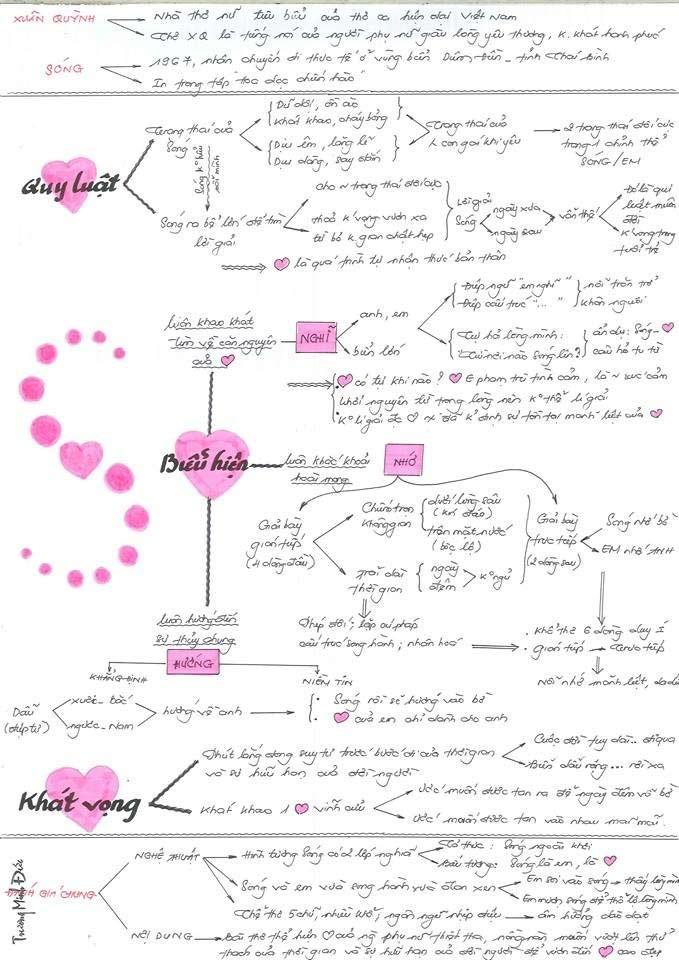 XUÂN QUỲNH
Nhà thơ nữ tiêu biểu của thơ ca hiện đại Việt Nam
Thơ XQ là tiếng nói của người phụ nữ giàu lòng yêu thương, k. khát hạnh phúc
SÓNG
1967, nhân chuyến đi thực tế ở vùng biển Diêm Điền - tỉnh Thái Bình
In trong tập Hoa dọc chiến hào
Quy luật
Trạng thái của
Sóng
Dữ dội, ồn ào
Khát khao, cháy bỏng
Dịu êm, lặng lẽ
Dịu dàng, say đắm
Trạng thái của
1 con gái khi yêu
2 trạng thái đối cực
trong 1 chỉnh thể
SÓNG / EM
Sông k° hiểu
nổi mình
Sóng ra bể lớn để tìm
lời giải
cho ~ trạng thái đối cực
thoả k° vọng vươn xa
từ bỏ k. gian chật hẹp
Lời giải
Sóng
ngày xưa
ngày sau
vẫn thế
đó là qui
luật muôn
đời
K° vọng trong
tuổi trẻ
là quá trình tự nhận thức bản thân
luôn khao khát
tìm về căn nguyên
của
NGHĨ
anh, em
biển lớn
Điệp ngữ "em nghĩ"
Điệp cấu trúc "... "
nỗi trăn trở
khôn nguôi
Tự hỏi lòng mình:
"Từ nơi nào Sóng lên?"
ẩn dụ: Sóng -
câu hỏi tu từ
có từ khi nào? E phạm trù tình cảm, là ~ xúc cảm
khởi nguyên từ trong lòng nên k° thể lí giải
K° lí giải đc vì đã k° định sự tồn tại mãnh liệt của
Biểu hiện
luôn khắc khoải
hoài mong
NHỚ
Giãi bày
gián tiếp
(4 dòng đầu)
Chiếm trọn
không gian
dưới lòng sâu
(kín đáo)
trên mặt nước
(bộc lộ)
Trải dài
thời gian
ngày
đêm
k° ngủ
Giãi bày
trực tiếp
(2 dòng sau)
Sóng nhớ bờ
EM nhớ ANH
Phép đối; lặp cú pháp
cấu trúc song hành; nhân hoá
. khổ thơ 6 dòng duy I
. gián tiếp → trực tiếp
Nỗi nhớ mãnh liệt, da diết
luôn hướng đến
sự thủy chung
HƯỚNG
KHẲNG ĐỊNH
NIỀM TIN
Dẫu
(điệp từ)
xuôi - bắc
ngược - Nam
hướng về anh
Sóng rồi sẽ hướng vào bờ
của em chỉ dành cho anh
Khát vọng
Phút lắng đọng suy tư trước bước đi của thời gian
và sự hữu hạn của đời người
Cuộc đời tuy dài.. đi qua
Biển dẫu rộng... về xa
Khát khao 1 vĩnh cửu
ước muốn được tan ra để ngày đêm vỗ bờ
ước muốn được tan vào nhau mãi mãi.
ĐÁNH GIÁ CHUNG
NGHỆ THUẬT
Hình tượng Sóng có 2 lớp nghĩa
Tả thực: Sóng ngoài khơi
Biểu tượng: Sóng là em, là
Sóng và em vừa song hành vừa đan xen
Em soi vào sóng → thấy lòng mình
Em mượn sóng để thổ lộ lòng mình
Thể thơ 5 chữ, nhiều khổ, ngôn ngữ nhịp điệu
âm hưởng dào dạt
NỘI DUNG
Bài thơ thể hiện của ng phụ nữ thiết tha, nồng nàn muốn vượt lên thử
thách của thời gian và sự hữu hạn của đời người để vươn đến cao đẹp